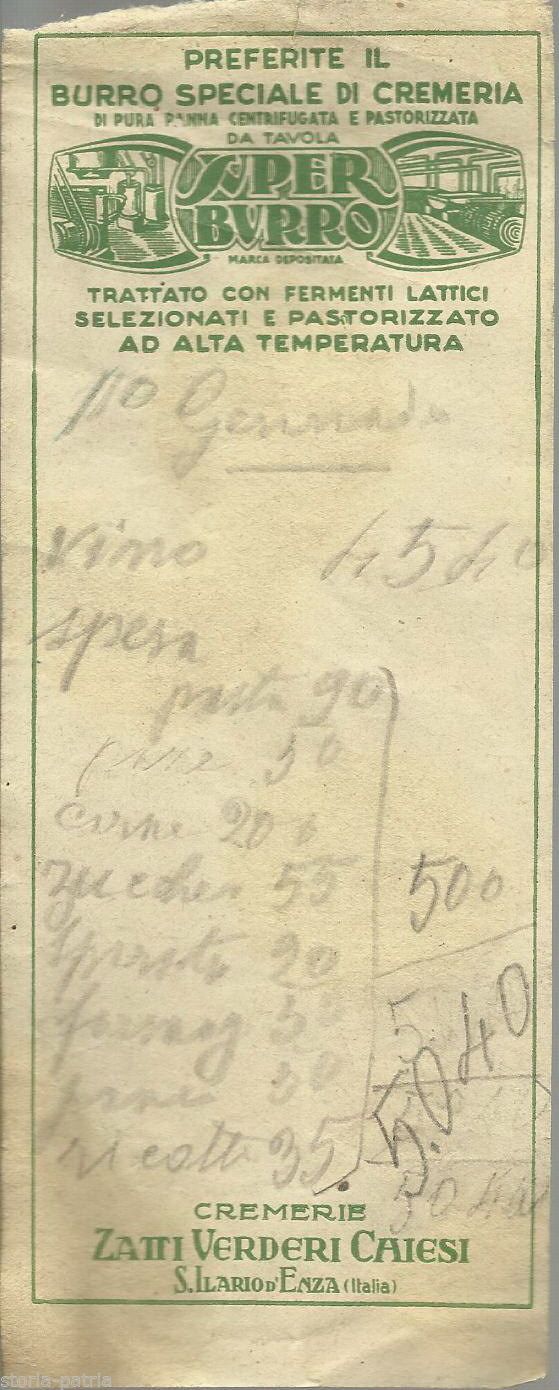 PREFERITE IL
BURRO SPECIALE DI CREMERIA
DI PURA PANNA CENTRIFUGATA E PASTORIZZATA
DA TAVOLA
SUPER
BURRO
MARCA DEPOSITATA
TRATTATO CON FERMENTI LATTICI
SELEZIONATI E PASTORIZZATO
AD ALTA TEMPERATURA
vino 45 40
spesa
pasta 90
pane 50
carne 200
zuccher 55 500
20
50
50 5.0.40
ricotta 35
50 40
CREMERIE
ZATTI VERDERI CHIESI
S. ILARIO D'ENZA (Italia)
storia-patria